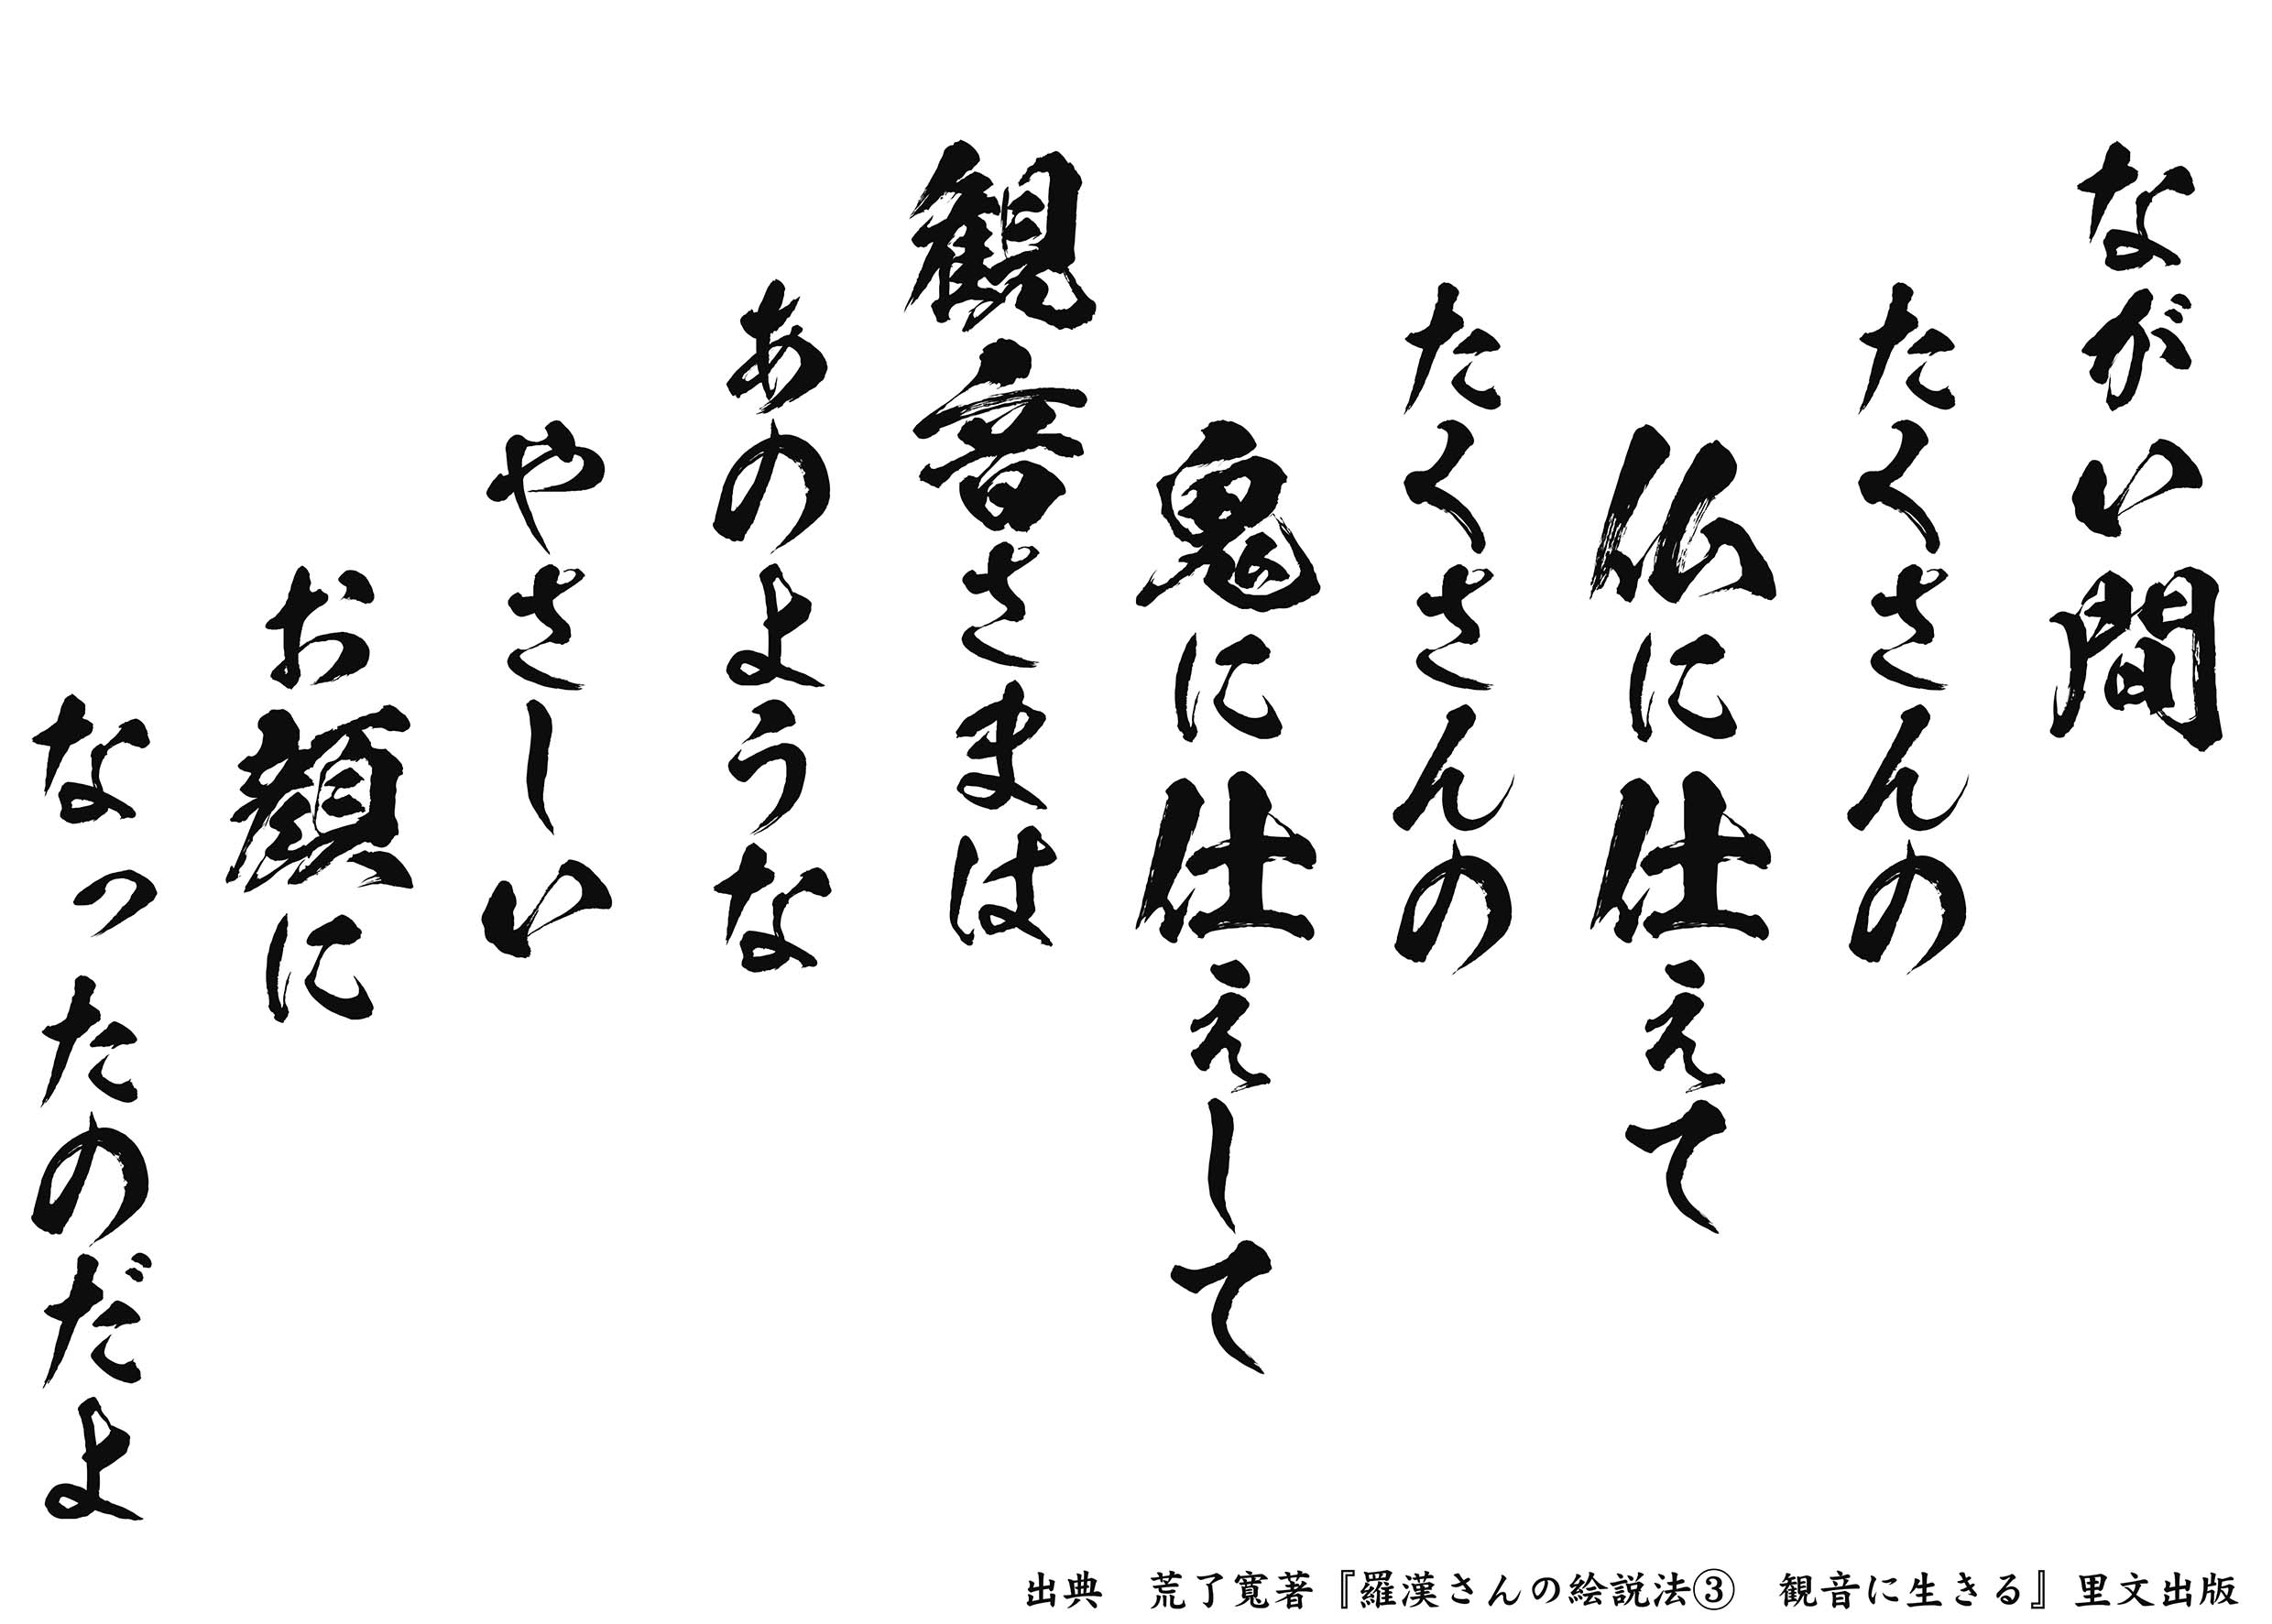 ながい間
たくさんの
仏に仕えて
たくさんの
鬼に仕えして
観音さまは
あのような
やさしい
お顔に
なったのだよ
出典　荒了寛著『羅漢さんの絵説法③　観音に生きる』里文出版